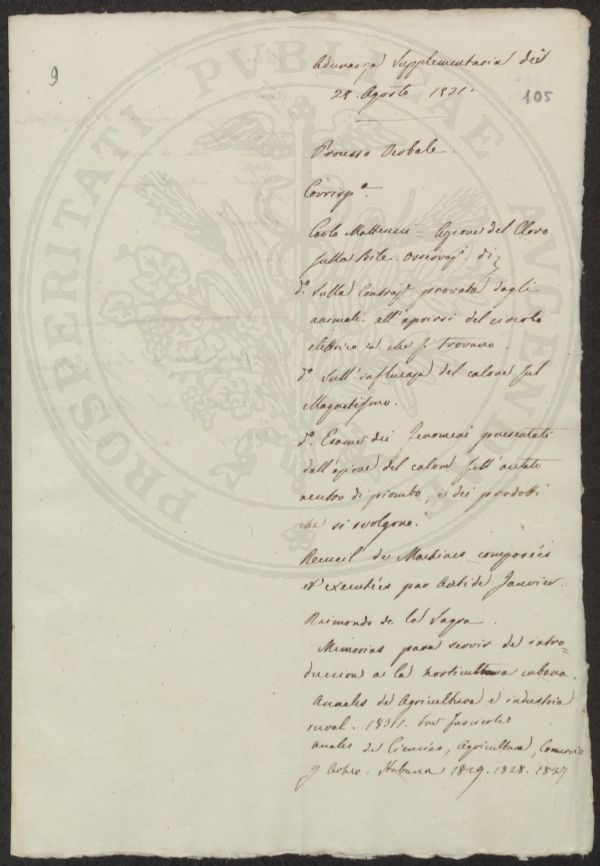 9
Adunanza Supplementaria del
28. Agosto 1831.
105
Processo Verbale.
Corrisp.a
Carlo Matteucci = Azione del Cloro
sulla Bile. Osservaz. di
d.o Sulla Contraz. provata dagli
animali all'aprirsi del circolo
elettrico in che si trovano.
d.o Sull'influenza del calore sul
Magnetismo.
d.o Esame dei fenomeni presentati
dall'azione del calore sull'acetato
neutro di piombo, e dei prodotti
che si svolgono.
Recueil de Machines composées
et executées par Antide Janvier.
Raimondo de la Sagra.
Memorias para servir de intro=
duccion a la horticultura cubana.
Annales de Agricultura e industria
rural. 1831. tre fascicoli
anales de Ciencias, Agricultura, Comercio
y Artes. Habana 1829. 1828. 1827
PROSPERITATI PUBLICAE AUGENDAE